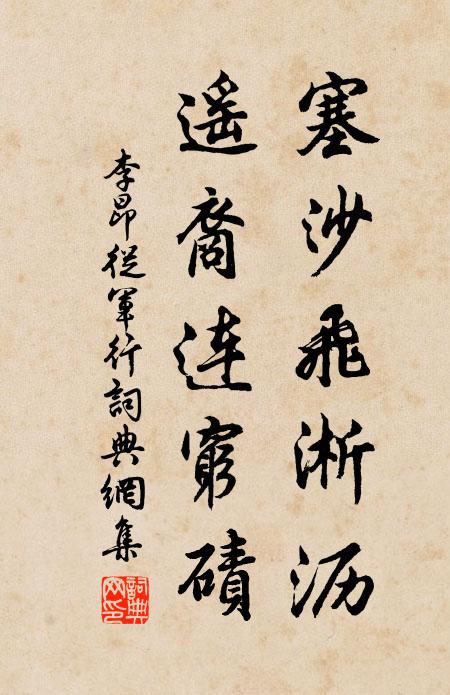 塞沙飛淅沥
遥裔连窮磧
李昂從軍行詞典網集
詞典网印